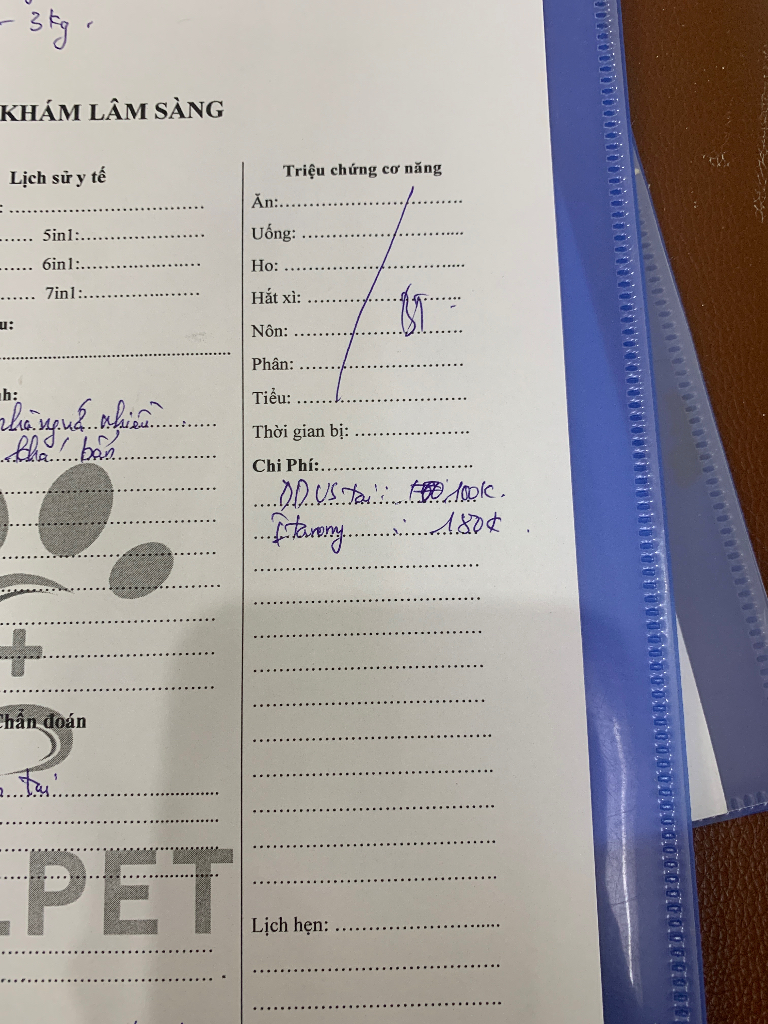 - 3kg.
KHÁM LÂM SÀNG
Lịch sử y tế
5in1:
6in1:
7in1:
nhiều
khá bẩn
Chẩn đoán
tai
.PET
Triệu chứng cơ năng
Ăn:
Uống:
Ho:
Hắt xì:
BT
Nôn:
Phân:
Tiểu:
Thời gian bị:
Chi Phí:
DDVS tai: 100k.
: 180k
Lịch hẹn: